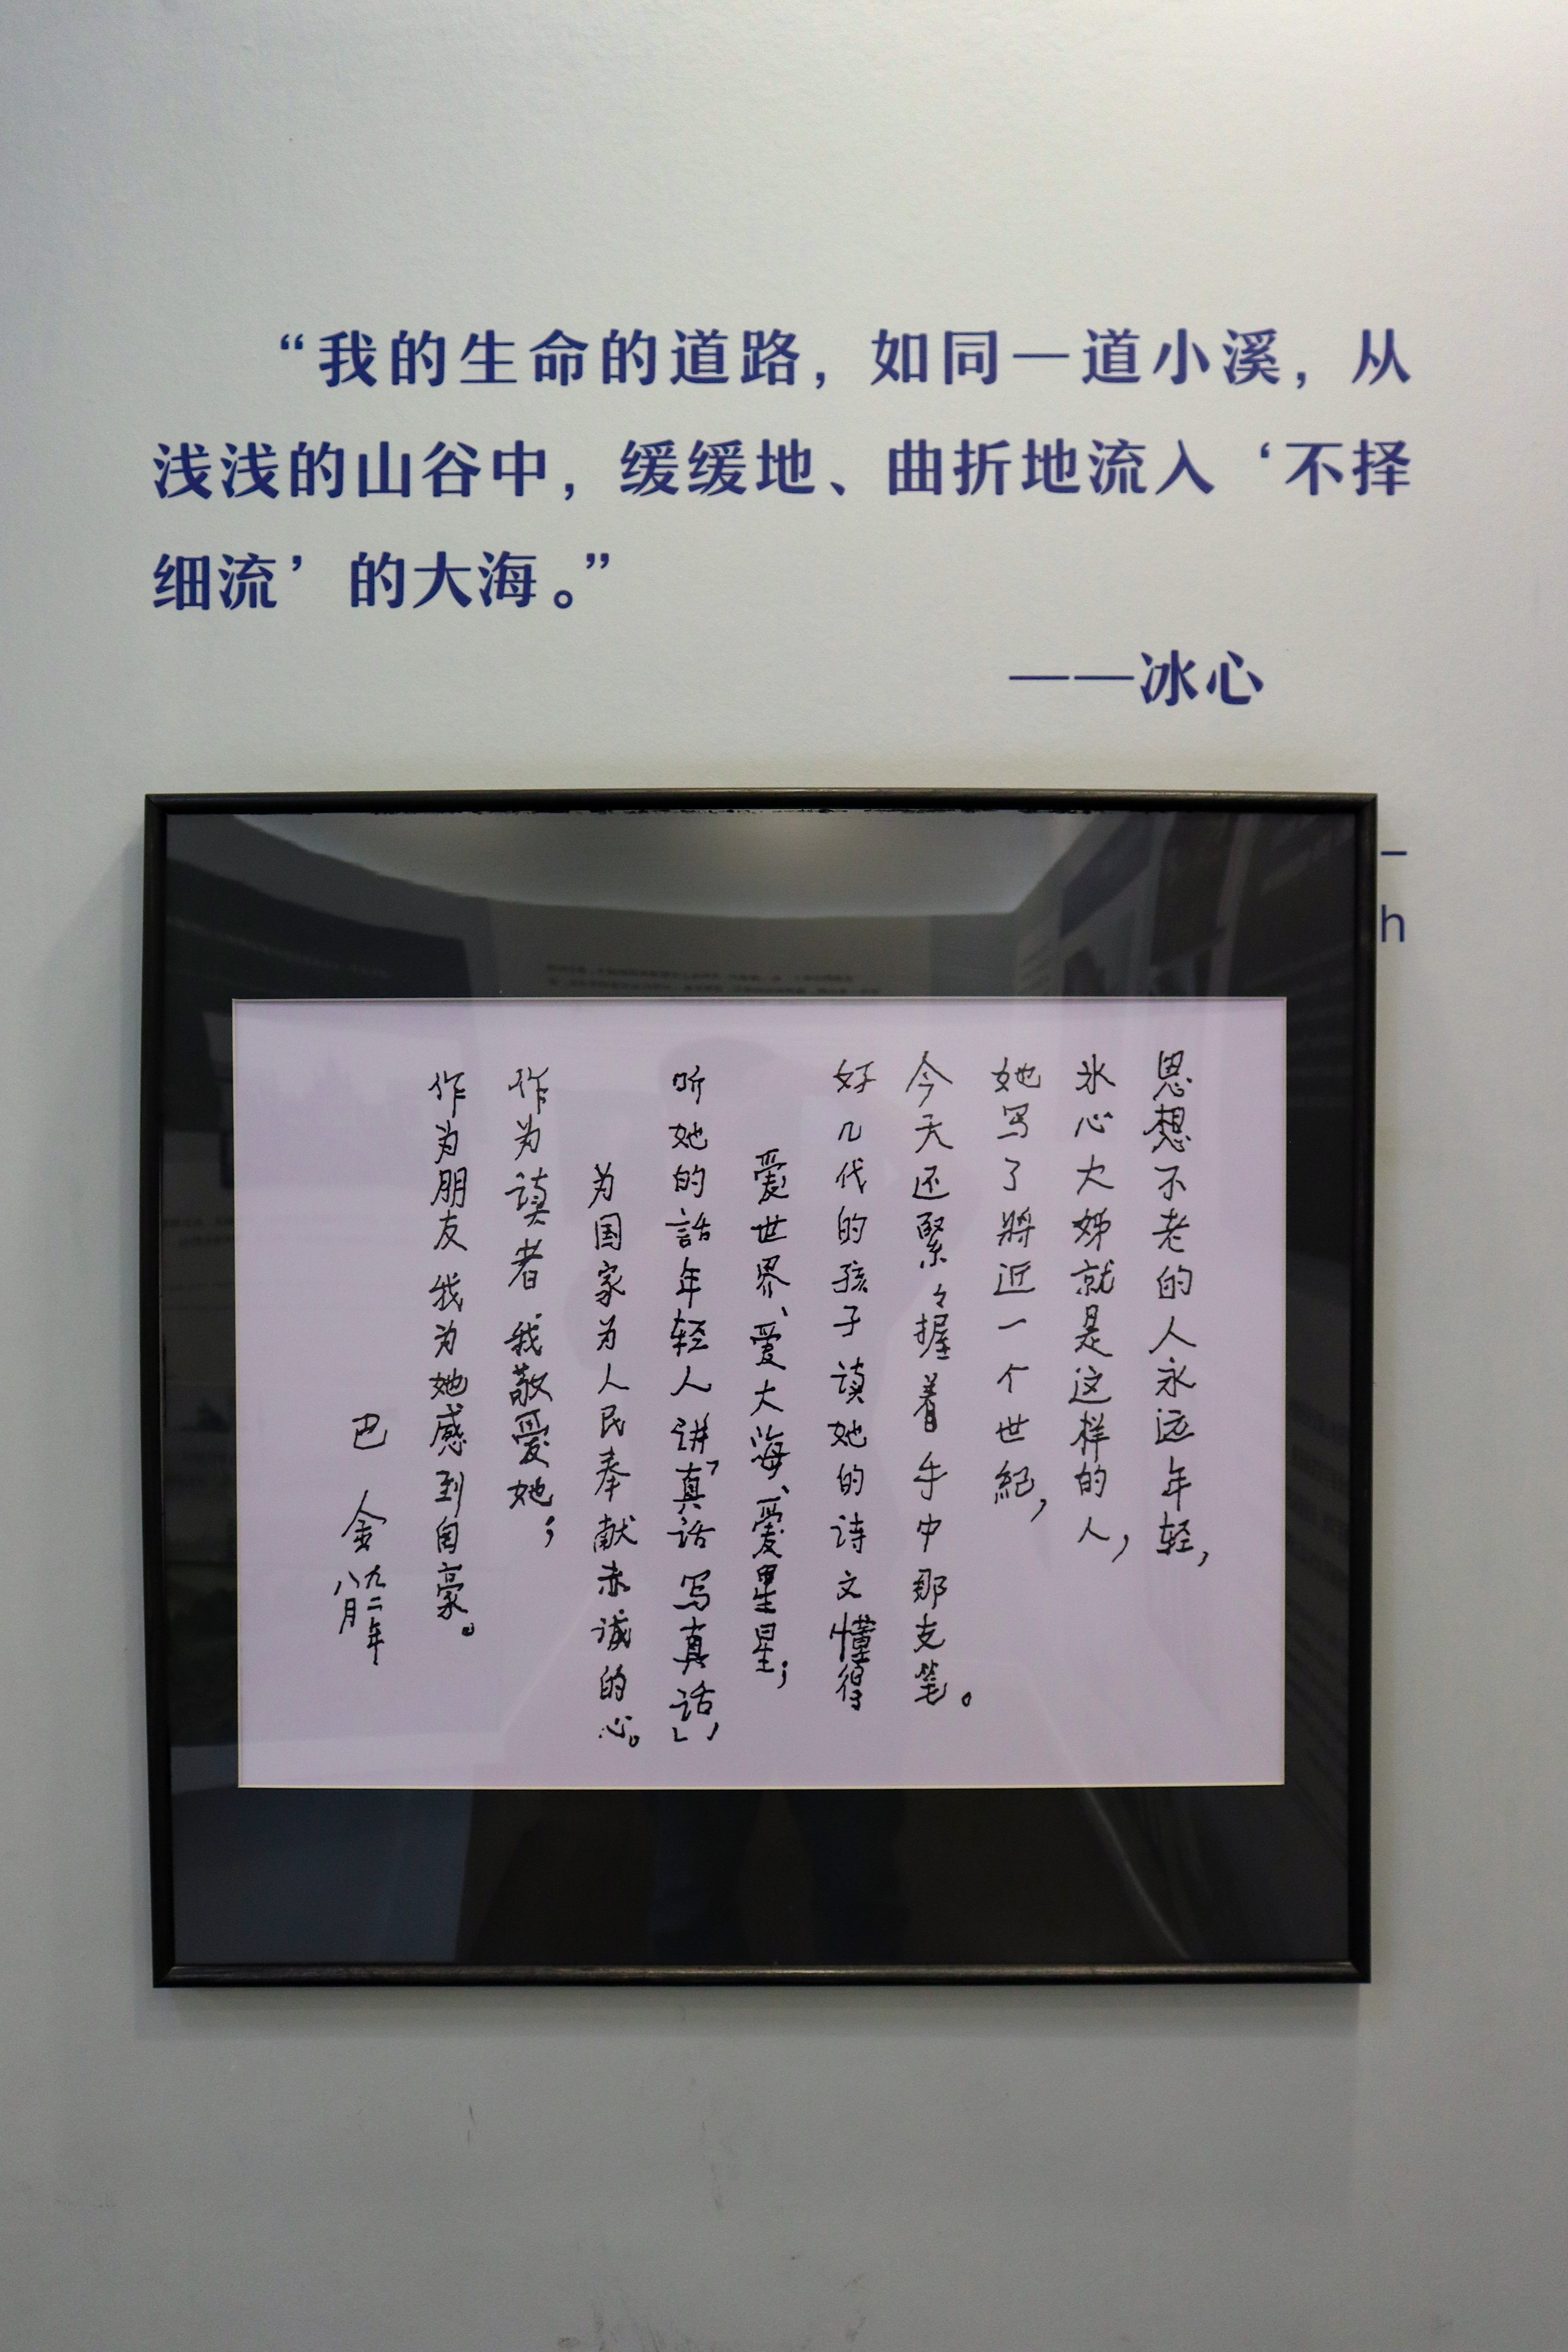 “我的生命的道路，如同一道小溪，从
浅浅的山谷中，缓缓地、曲折地流入‘不择
细流’的大海。”
——冰心
–
h
思想不老的人永远年轻，
氷心大姊就是这样的人，
她写了將近一个世紀，
今天还緊々握着手中那支笔。
好几代的孩子读她的诗文懂得
爱世界、爱大海、爱星星；
听她的話年轻人讲「真话写真话」，
为国家为人民奉献赤诚的心。
作为读者我敬爱她；
作为朋友我为她感到自豪。
巴金
九二年
八月